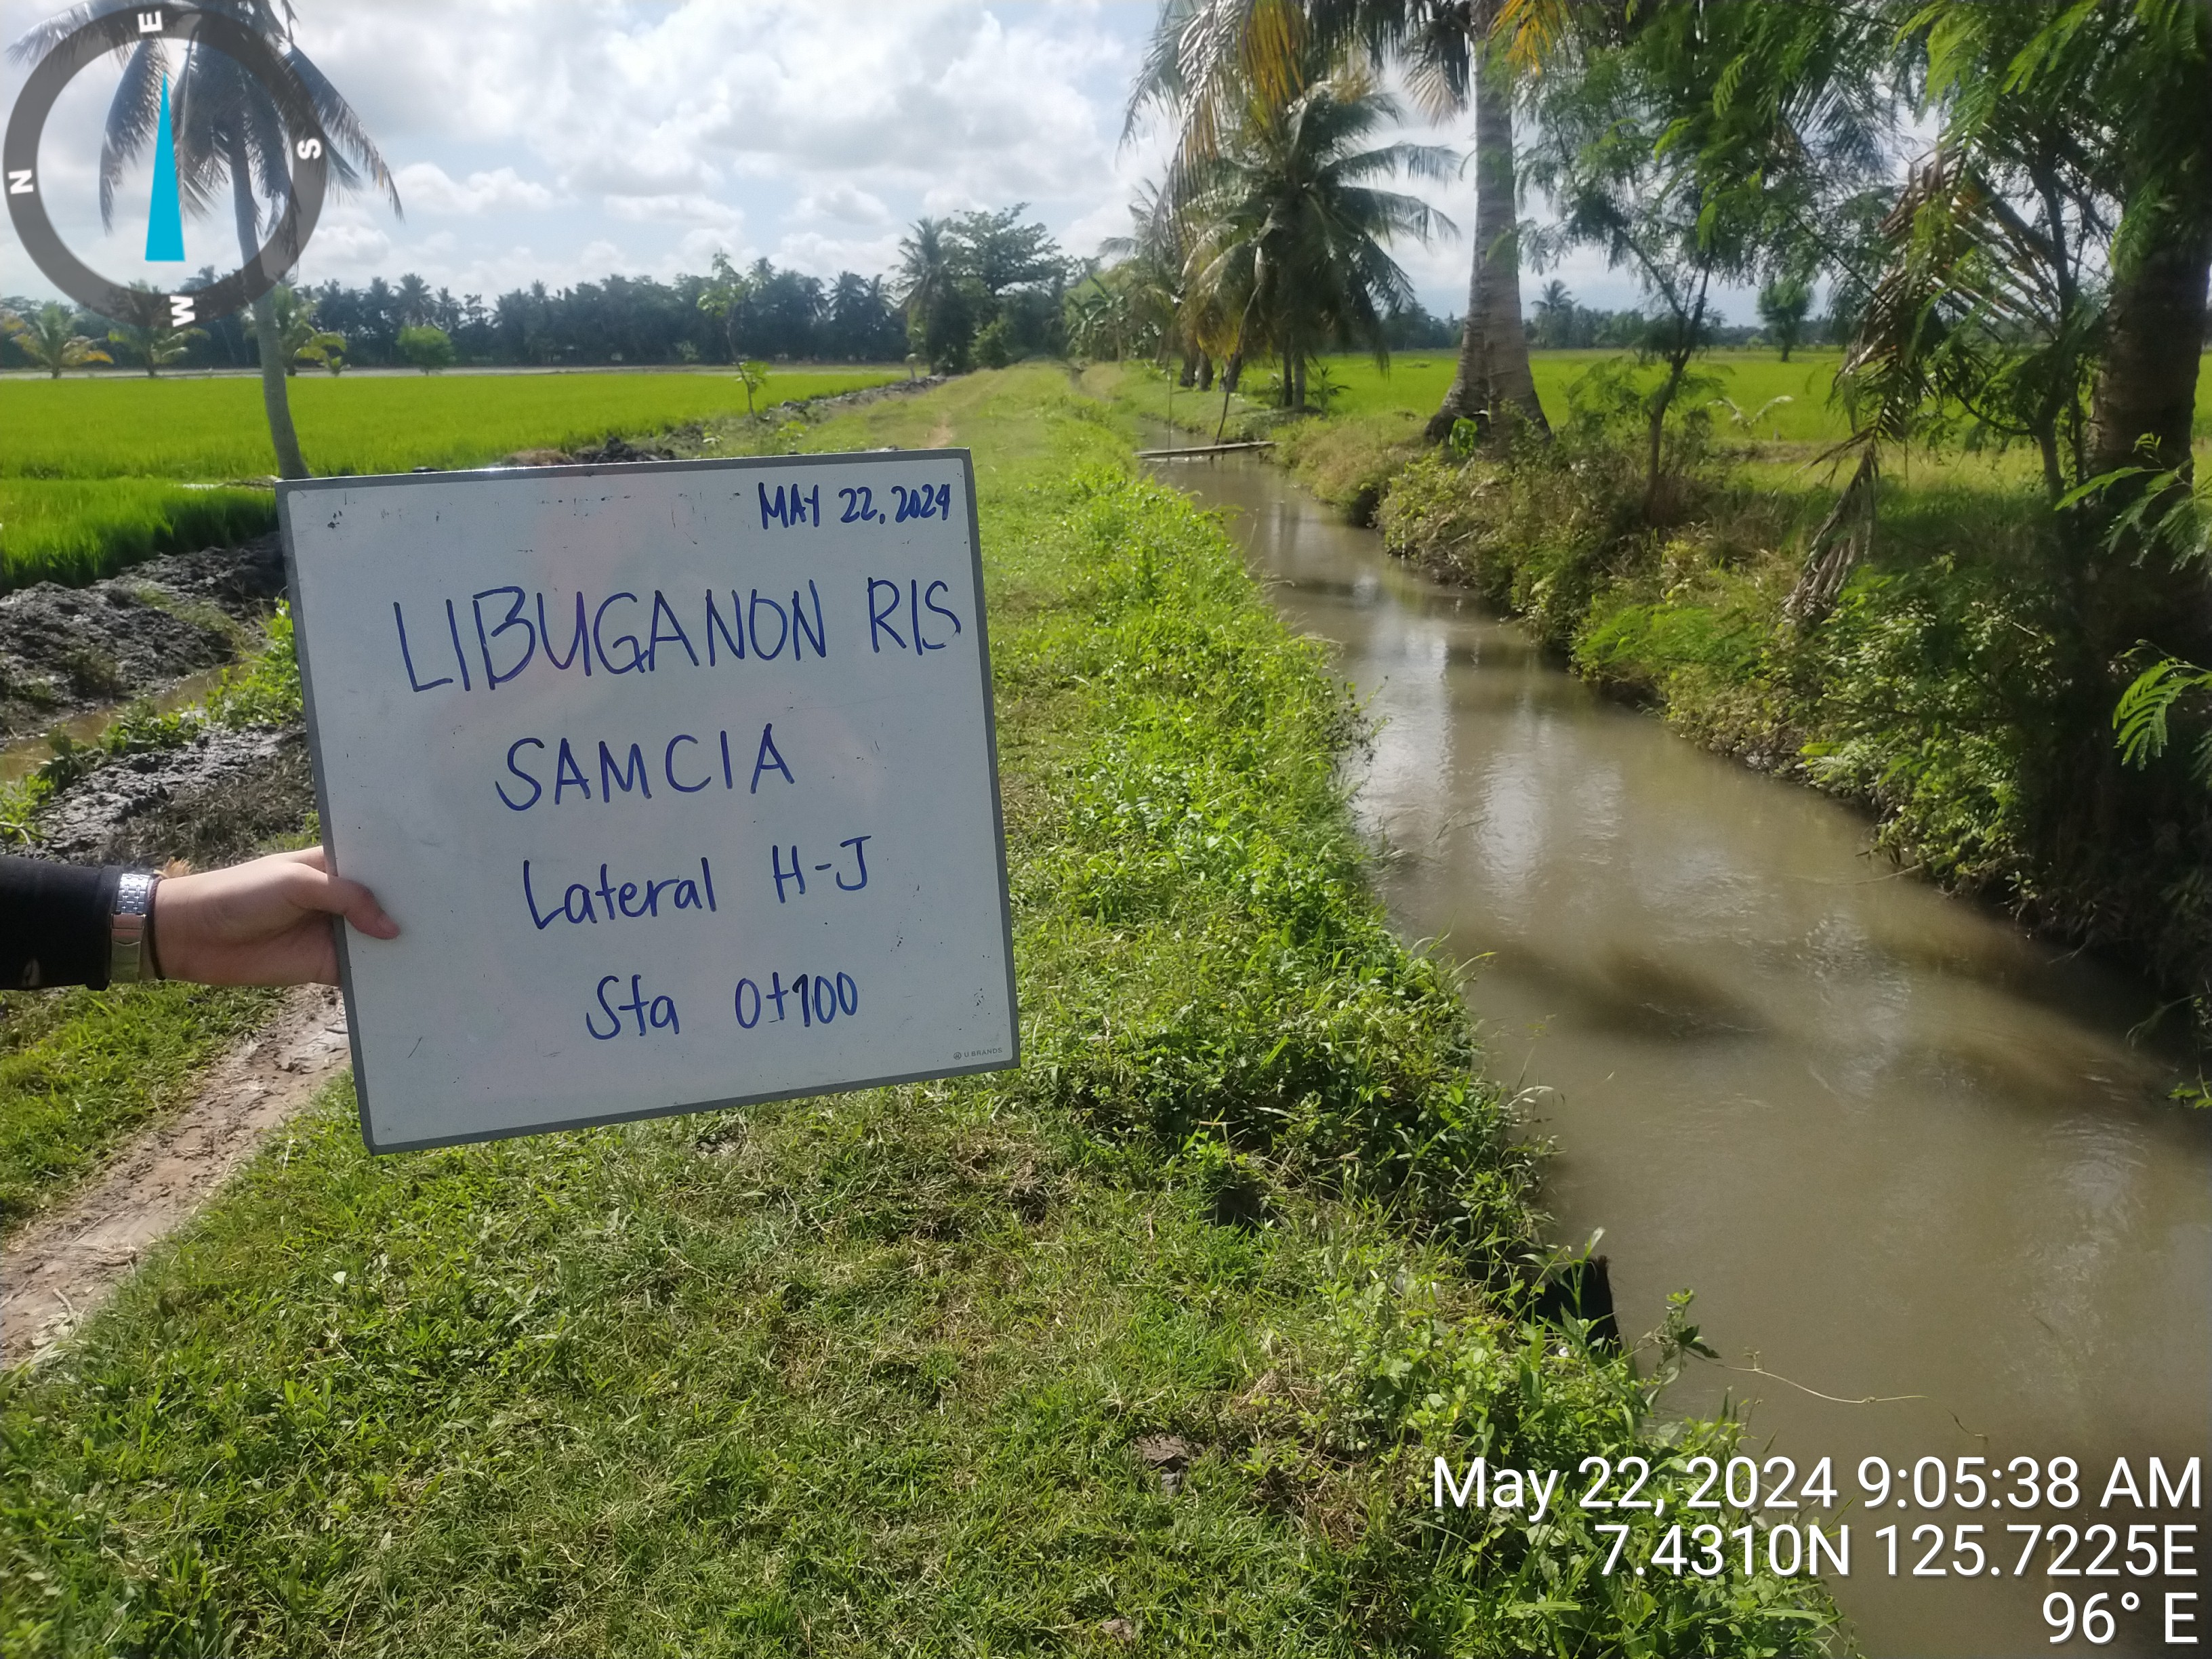 E
S
N
W
MAY 22, 2024
LIBUGANON RIS
SAMCIA
Lateral H-J
Sta 0+100
U BRANDS
May 22, 2024 9:05:38 AM
7.4310N 125.7225E
96° E